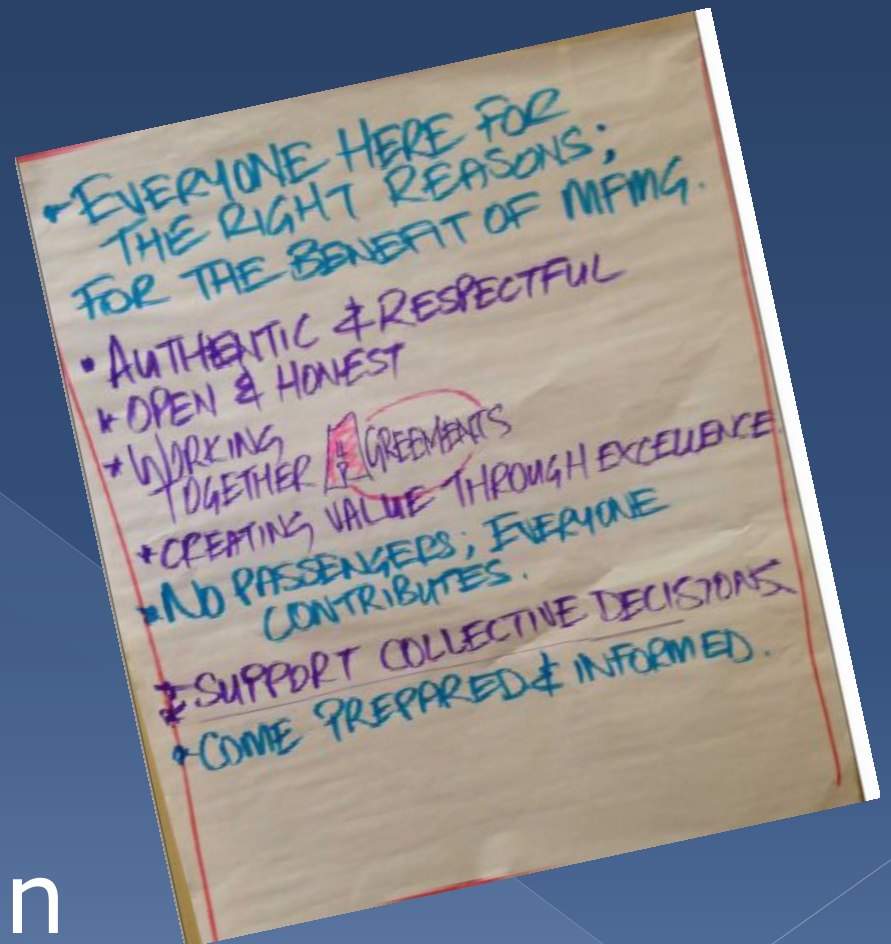 EVERYONE HERE FOR
THE RIGHT REASONS;
FOR THE BENEFIT OF MFMG.
• AUTHENTIC & RESPECTFUL
* OPEN & HONEST
* WORKING
TOGETHER AGREEMENTS
* CREATING VALUE THROUGH EXCELLENCE
NO PASSENGERS; EVERYONE
CONTRIBUTES.
* SUPPORT COLLECTIVE DECISIONS
* COME PREPARED & INFORMED.
n